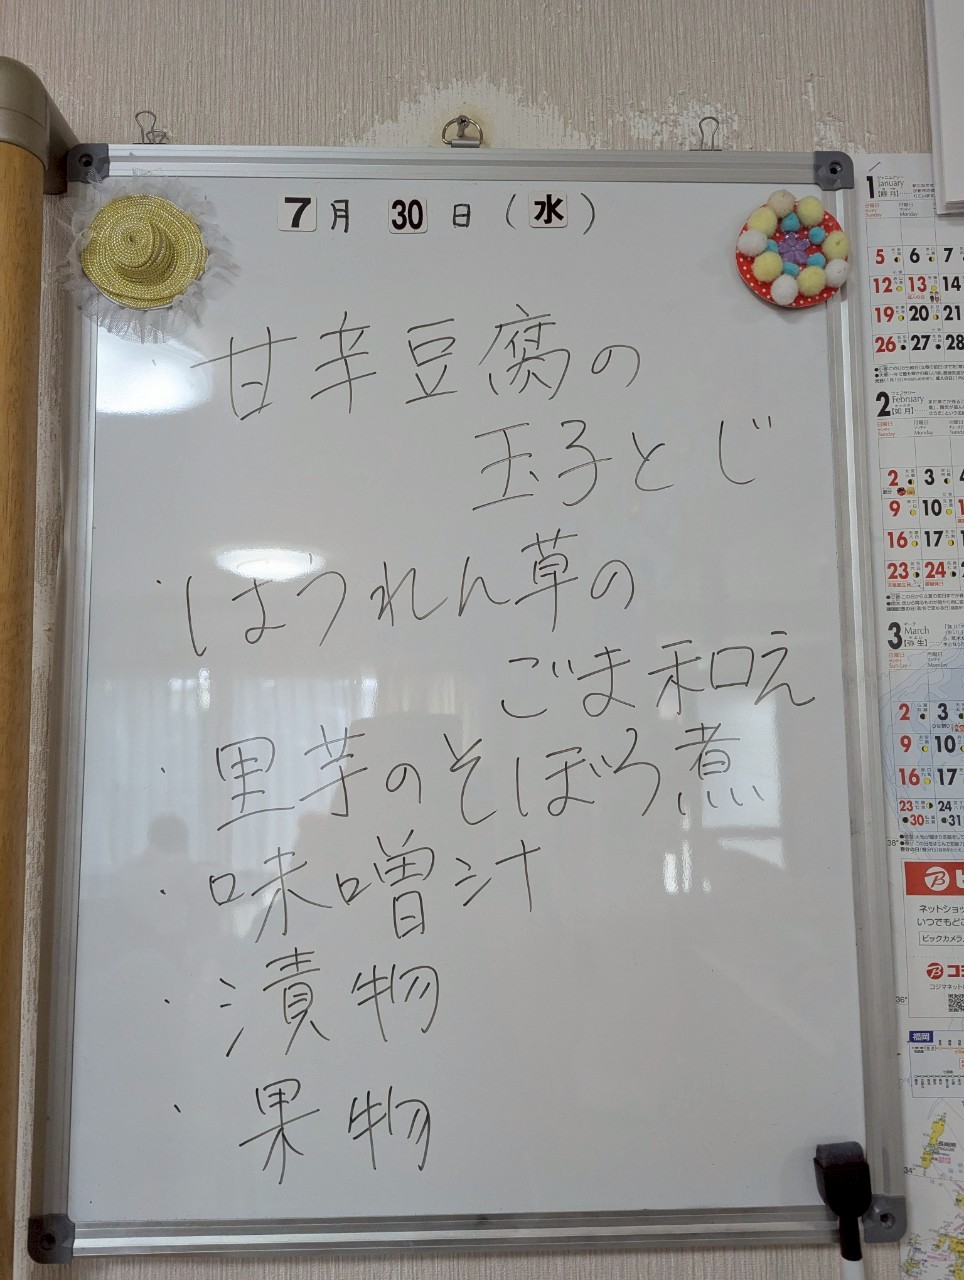 7月 30日（水）
・甘辛豆腐の
玉子とじ
・ほうれん草の
ごま和え
・里芋のそぼろ煮
・味噌汁
・漬物
・果物
1
January
【睦月】
5 6 7
12 13 14
19 20 21
26 27 28
2
February
【如月】
2 3
9 10
16 17
23 24
3
March
【弥生】
2 3
9 10
16 17
23 24
30 31
ネットショッ
いつでもどこ
ビックカメラ.
コジマネット
36°
福岡
34°